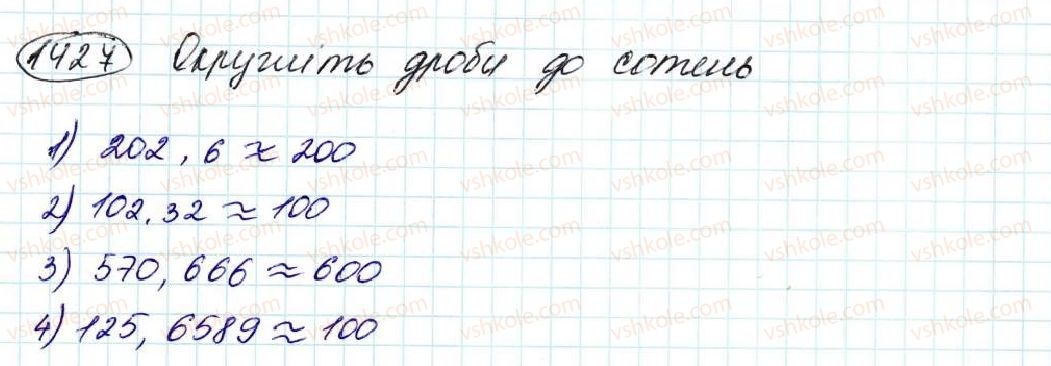 1427 Округліть дроби до сотень
1) 202,6 ≈ 200
2) 102,32 ≈ 100
3) 570,666 ≈ 600
4) 125,6589 ≈ 100